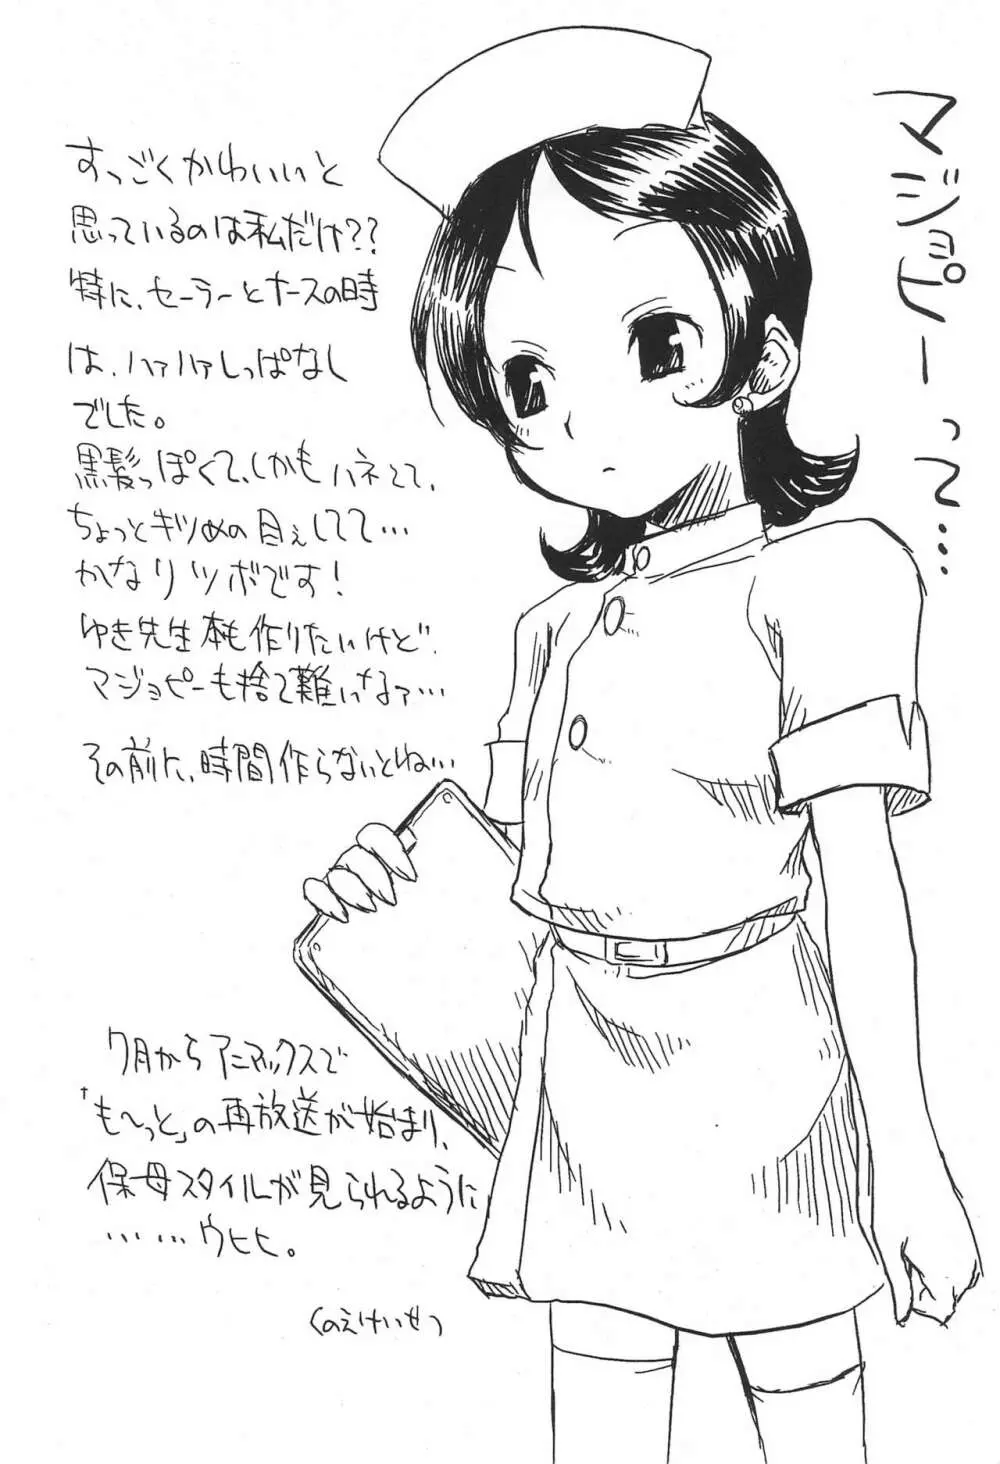 マジョピーって…
すっごくかわいいと
思っているのは私だけ??
特に、セーラーとナースの時
は、ハァハァしっぱなし
でした。
黒髪っぽくて、しかもハネてて、
ちょっとキツめの目ぇしてて…
かなりツボです!
ゆき先生本も作りたいけど、
マジョピーも捨て難いなァ…
その前に、時間作らないとね…
7月からアニマックスで
「も〜っと」の再放送が始まり、
保母スタイルが見られるように
……ウヒヒ。
くのえけいせつ